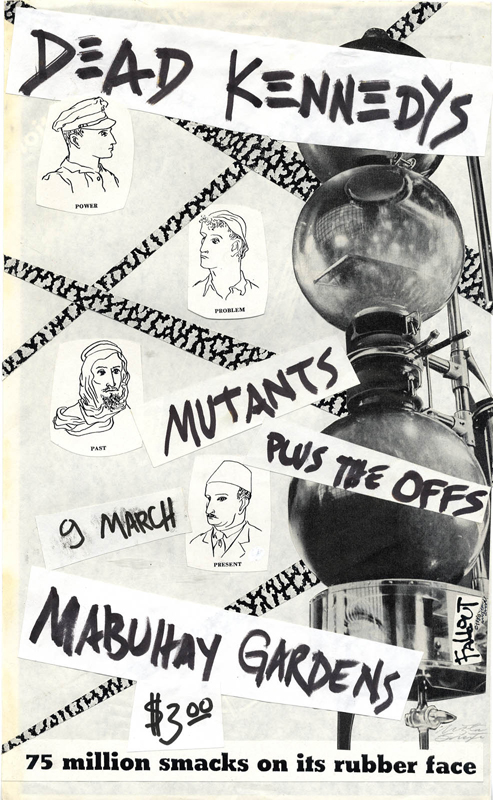 DEAD KENNEDYS
POWER
PROBLEM
PAST
MUTANTS
PLUS THE OFFS
9 MARCH
PRESENT
FALLOUT
MABUHAY GARDENS
$3.00
75 million smacks on its rubber face